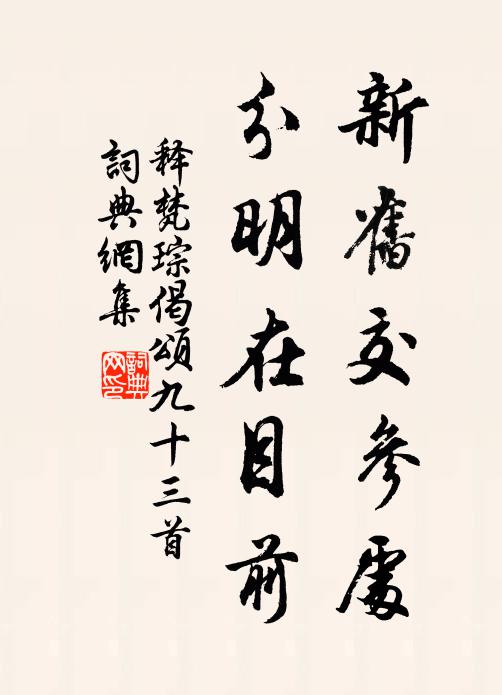 新舊交參處
分明在目前
释梵琮偈頌九十三首
詞典網集
詞典网印